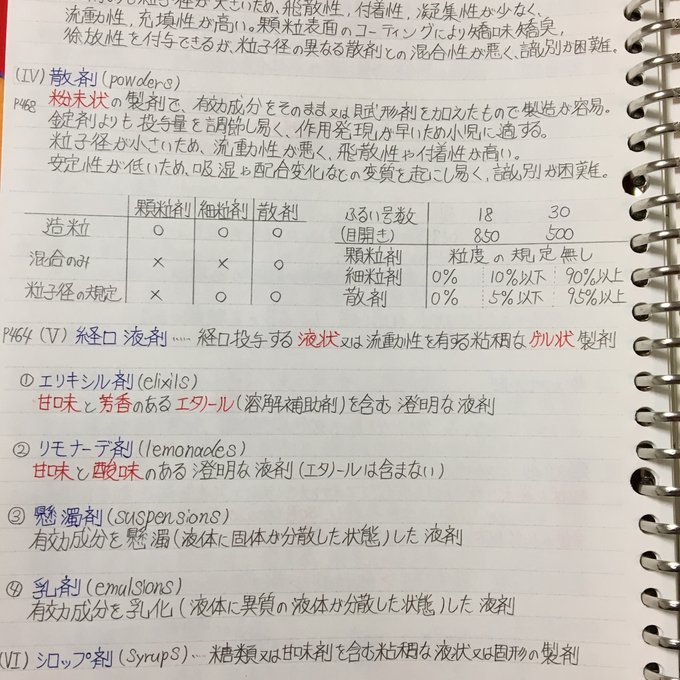 粒子径が大きいため、飛散性、付着性、凝集性が少なく、
流動性、充填性が高い。顆粒表面のコーティングにより矯味矯臭、
徐放性を付与できるが、粒子径の異なる散剤との混合性が悪く、識別が困難。
(IV) 散剤 (powders)
P468 粉末状の製剤で、有効成分をそのまま又は賦形剤を加えたもので製造が容易。
錠剤よりも投与量を調節し易く、作用発現が早いため小児に適する。
粒子径が小さいため、流動性が悪く、飛散性や付着性が高い。
安定性が低いため、吸湿や配合変化などの変質を起こし易く、識別が困難。
顆粒剤 細粒剤 散剤
造粒 ○ ○ ○
混合のみ × × ○
粒子径の規定 × ○ ○
ふるい号数 18 30
(目開き) 850 500
顆粒剤 粒度の規定無し
細粒剤 0% 10%以下 90%以上
散剤 0% 5%以下 95%以上
P464 (V) 経口液剤 …… 経口投与する液状又は流動性を有する粘稠なゲル状製剤
① エリキシル剤 (elixils)
甘味と芳香のあるエタノール(溶解補助剤)を含む澄明な液剤
② リモナーデ剤 (lemonades)
甘味と酸味のある澄明な液剤 (エタノールは含まない)
③ 懸濁剤 (suspensions)
有効成分を懸濁 (液体に固体が分散した状態) した液剤
④ 乳剤 (emulsions)
有効成分を乳化 (液体に異質の液体が分散した状態) した液剤
(VI) シロップ剤 (syrups) …… 糖類又は甘味剤を含む粘稠な液状又は固形の製剤